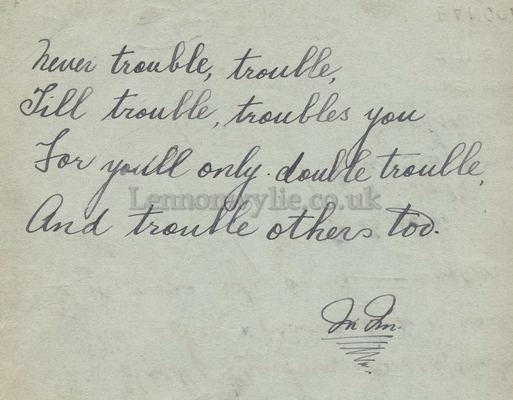 Never trouble, trouble,
Till trouble, troubles you
For youll only double trouble,
Lennonwylie.co.uk
And trouble others too.